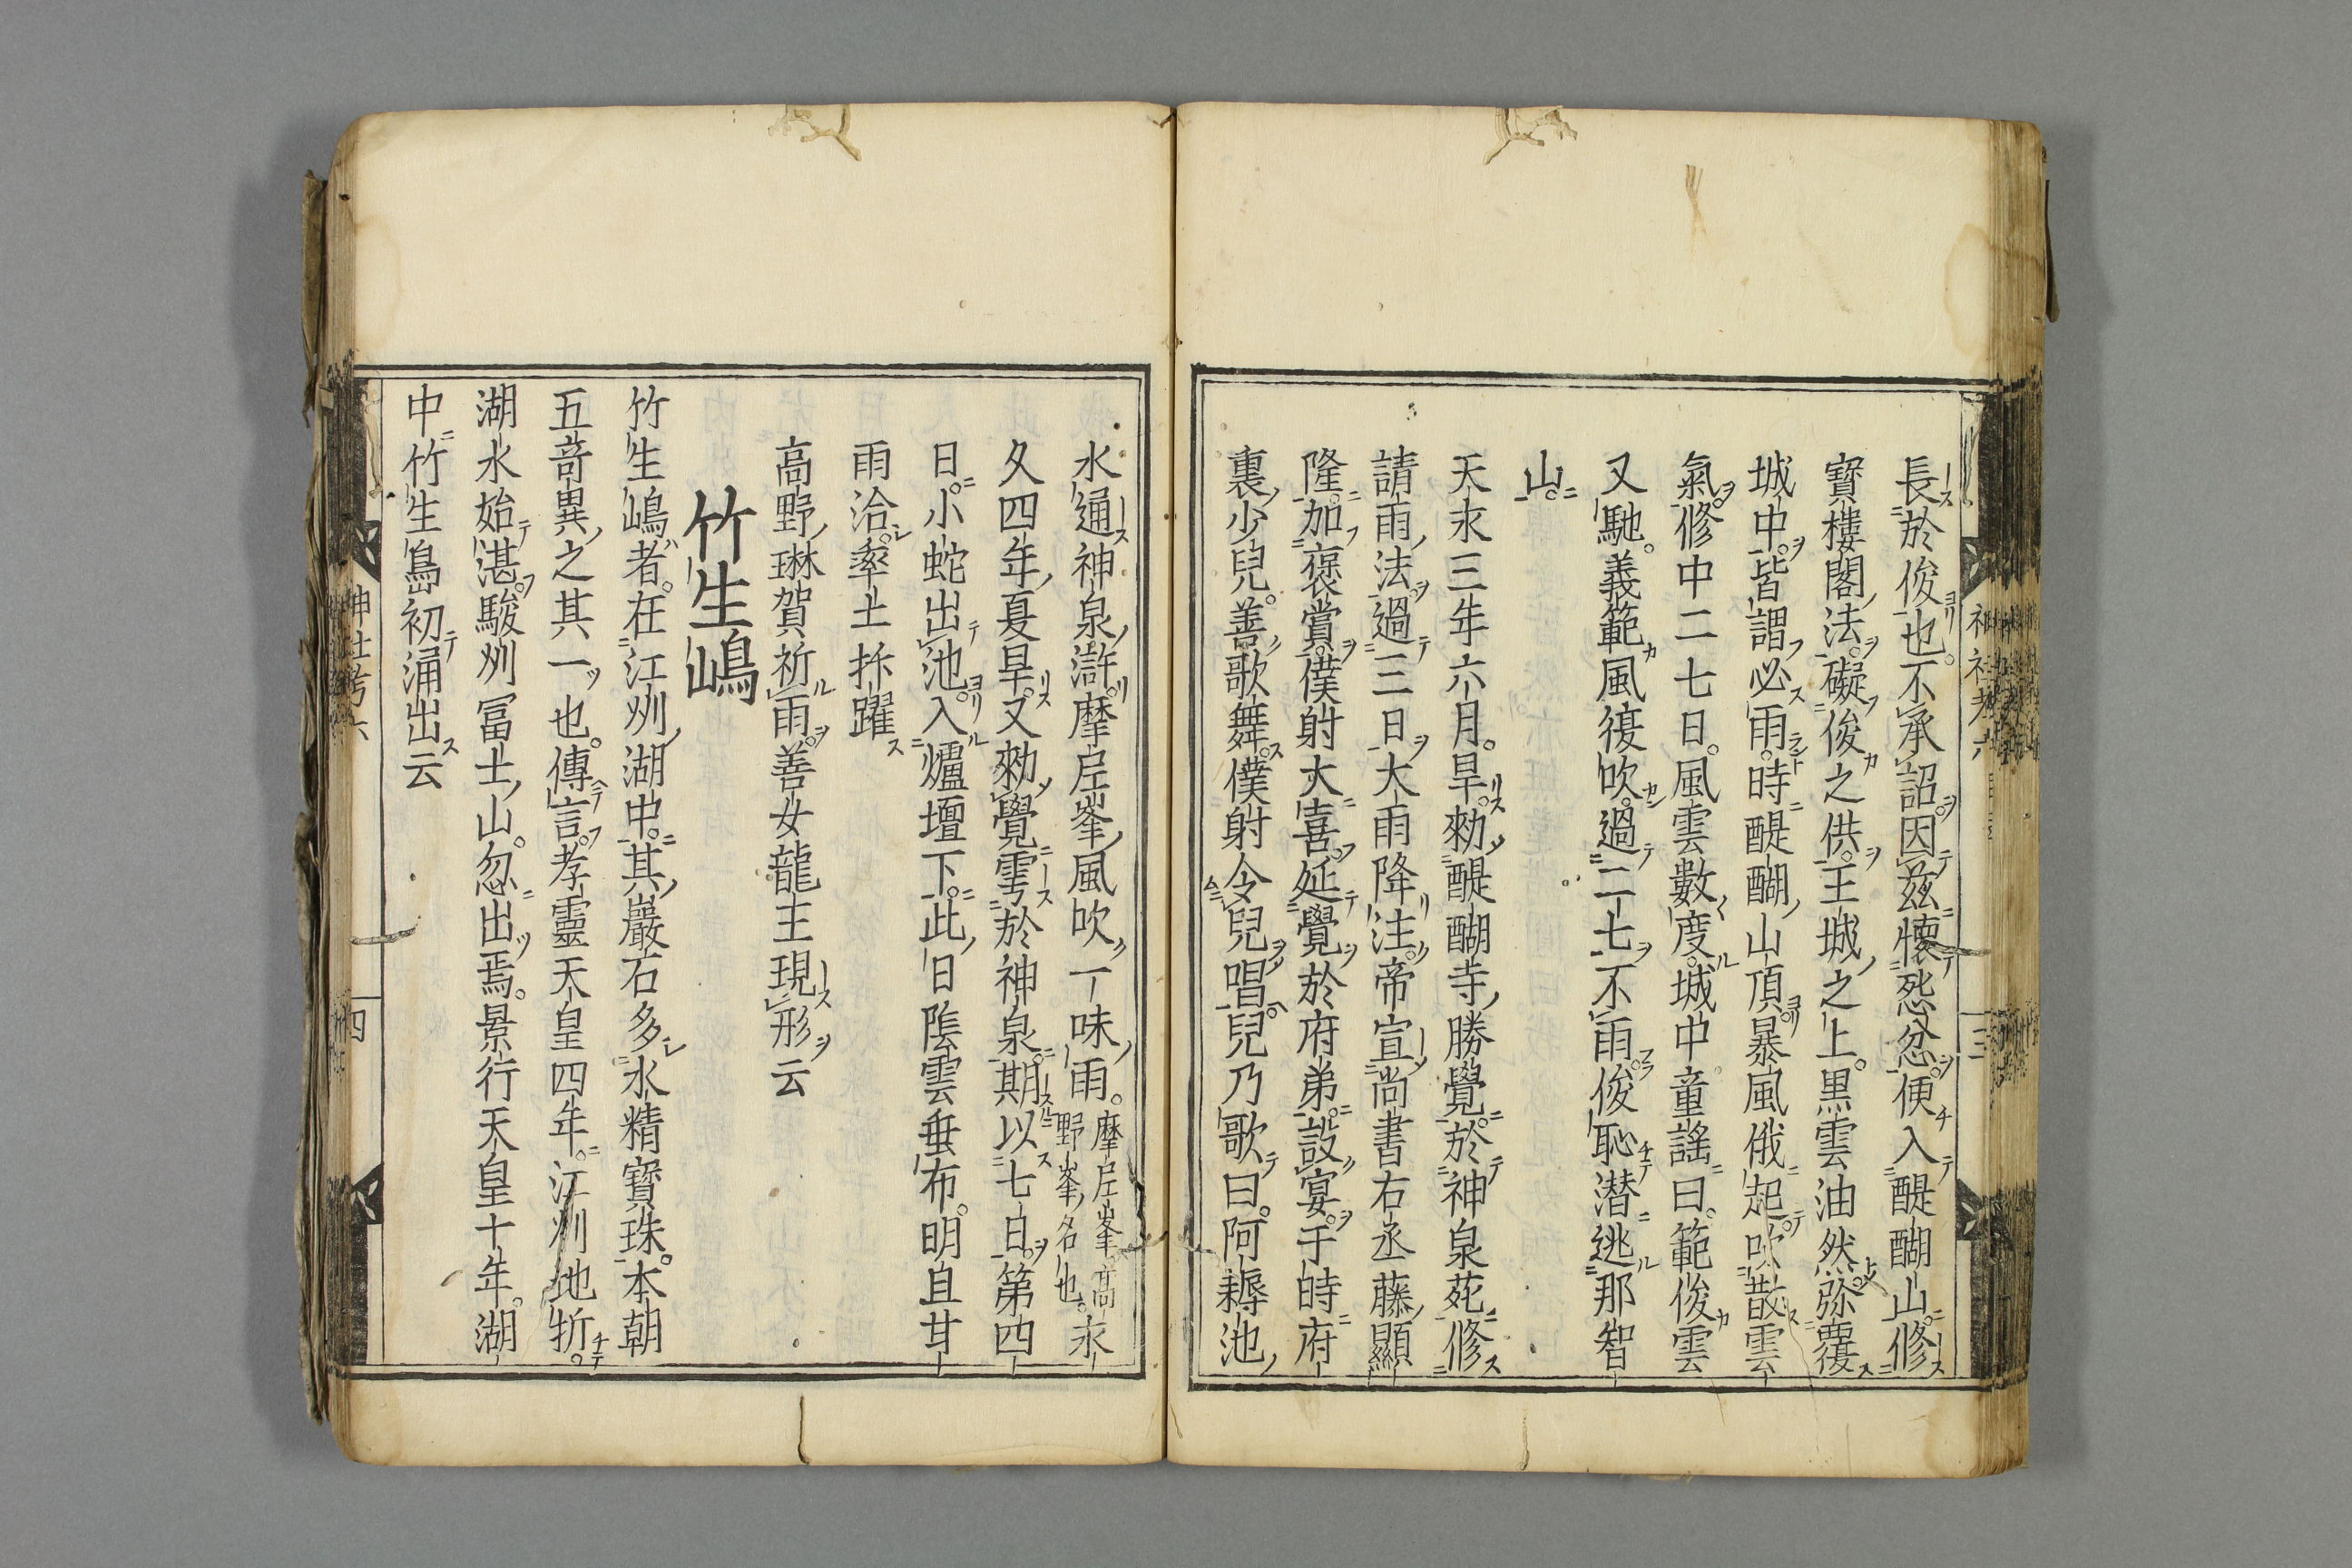 長於俊也不承詔因茲懷怨忿便入醍醐山修
寶樓閣法礙俊之供王城之上黒雲油然弥覆
城中皆謂必雨時醍醐山頂暴風俄起吹散雲
氣修中二七日風雲數度城中童謡曰範俊雲
又馳義範風復吹過二七不雨俊恥潜逃那智
山
天永三年六月旱勑醍醐寺勝覺於神泉苑修
請雨法過三日大雨降注帝宣尚書右丞藤顯
隆加褒賞僕射大喜延覺於府弟設宴于時府
裏少兒善歌舞僕射令兒唱兒乃歌曰阿耨池
水通神泉滸摩尼峯風吹一味雨摩尼峯高野峯名也永
久四年夏旱又勑覺雩於神泉期以七日第四
日小蛇出池入爐壇下此日陰雲垂布明且甘
雨洽率土抃躍
高野琳賀祈雨善女龍王現形云
竹生嶋
竹生嶋者在江州湖中其巖石多水精寶珠本朝
五竒異之其一也傳言孝靈天皇四年江州地坼
湖水始湛駿州冨士山忽出焉景行天皇十年湖
中竹生島初涌出云
神社考六
三
神社考六
四